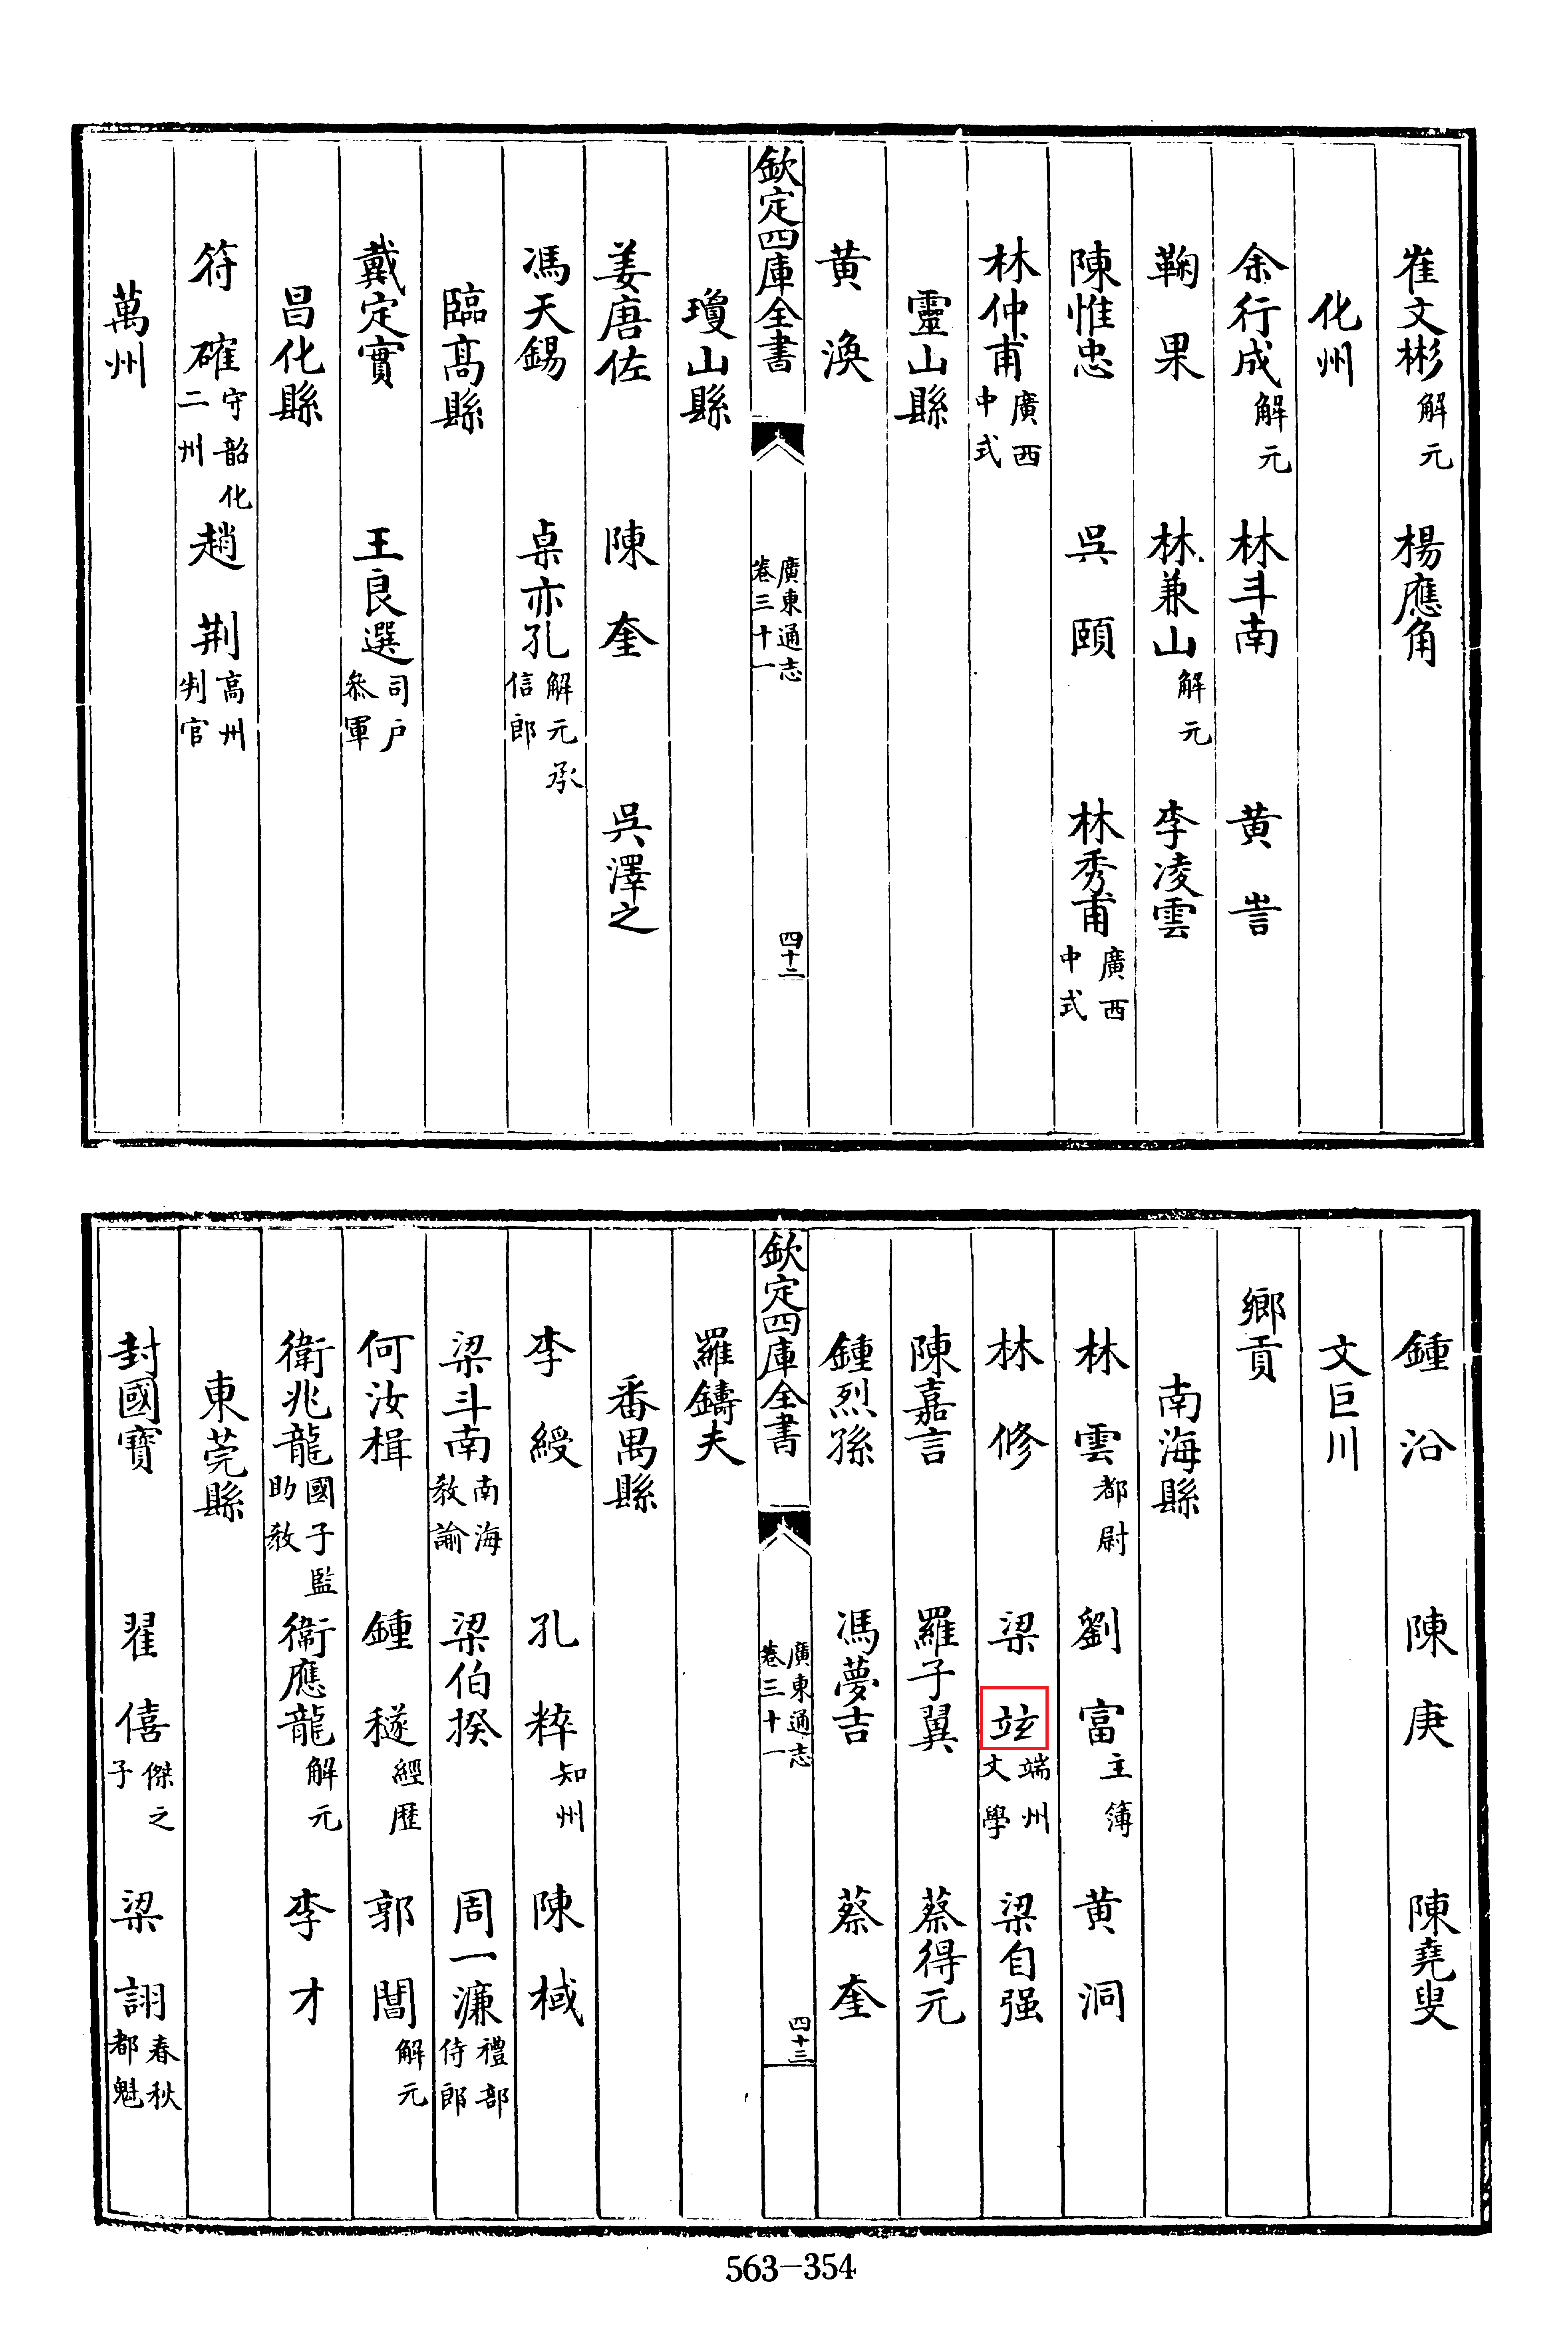 崔文彬解元 楊應角
化州
余行成解元 林斗南 黄訔
鞠果 林兼山解元 李凌雲
陳惟忠 吳頤 林秀甫廣西中式
林仲甫廣西中式
靈山縣
黄渙
欽定四庫全書 廣東通志卷三十一 四十二
瓊山縣
姜唐佐 陳奎 吳澤之
馮天錫 桌亦孔解元承信郎
臨高縣
戴定實 王良選司户叅軍
昌化縣
符確守韶化二州 趙荆高州判官
萬州
鍾沿 陳庚 陳堯叟
文巨川
鄉貢
南海縣
林雲都尉 劉富主簿 黄洞
林修 梁端州文學 梁自强
陳嘉言 羅子翼 蔡得元
鍾烈孫 馮夢吉 蔡奎
欽定四庫全書 廣東通志卷三十一 四十三
羅鑄夫
番禺縣
李綬 孔粹知州 陳棫
梁斗南南海教諭 梁伯揆 周一濂禮部侍郎
何汝楫 鍾穟經歷 郭誾解元
衛兆龍國子監助教 衞應龍解元 李才
東莞縣
封國寶 翟僖傑之子 梁詡春秋都魁
563-354